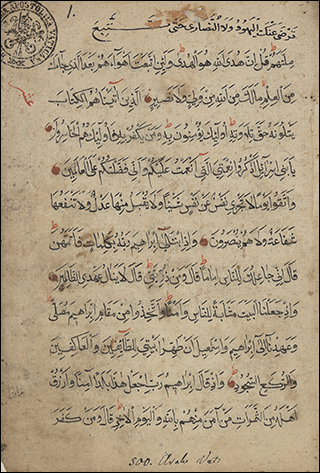 1.
APOSTOLICA VATICANA
ترضى عنك اليهود ولا النصارى حتى تتبع
ملتهم قل إن هدى الله هو الهدى ولئن اتبعت أهواءهم بعد الذي جاءك
من العلم ما لك من الله من ولي ولا نصير الذين آتيناهم الكتاب
يتلونه حق تلاوته أولئك يؤمنون به ومن يكفر به فأولئك هم الخاسرون
يا بني إسرائيل اذكروا نعمتي التي أنعمت عليكم وأني فضلتكم على العالمين
واتقوا يوما لا تجزي نفس عن نفس شيئا ولا يقبل منها عدل ولا تنفعها
شفاعة ولا هم ينصرون وإذ ابتلى إبراهيم ربه بكلمات فأتمهن
قال إني جاعلك للناس إماما قال ومن ذريتي قال لا ينال عهدي الظالمين
وإذ جعلنا البيت مثابة للناس وأمنا واتخذوا من مقام إبراهيم مصلى
وعهدنا إلى إبراهيم وإسماعيل أن طهرا بيتي للطائفين والعاكفين
والركع السجود وإذ قال إبراهيم رب اجعل هذا بلدا آمنا وارزق
أهله من الثمرات من آمن منهم بالله واليوم الآخر قال ومن كفر
500. Arabo Vat.